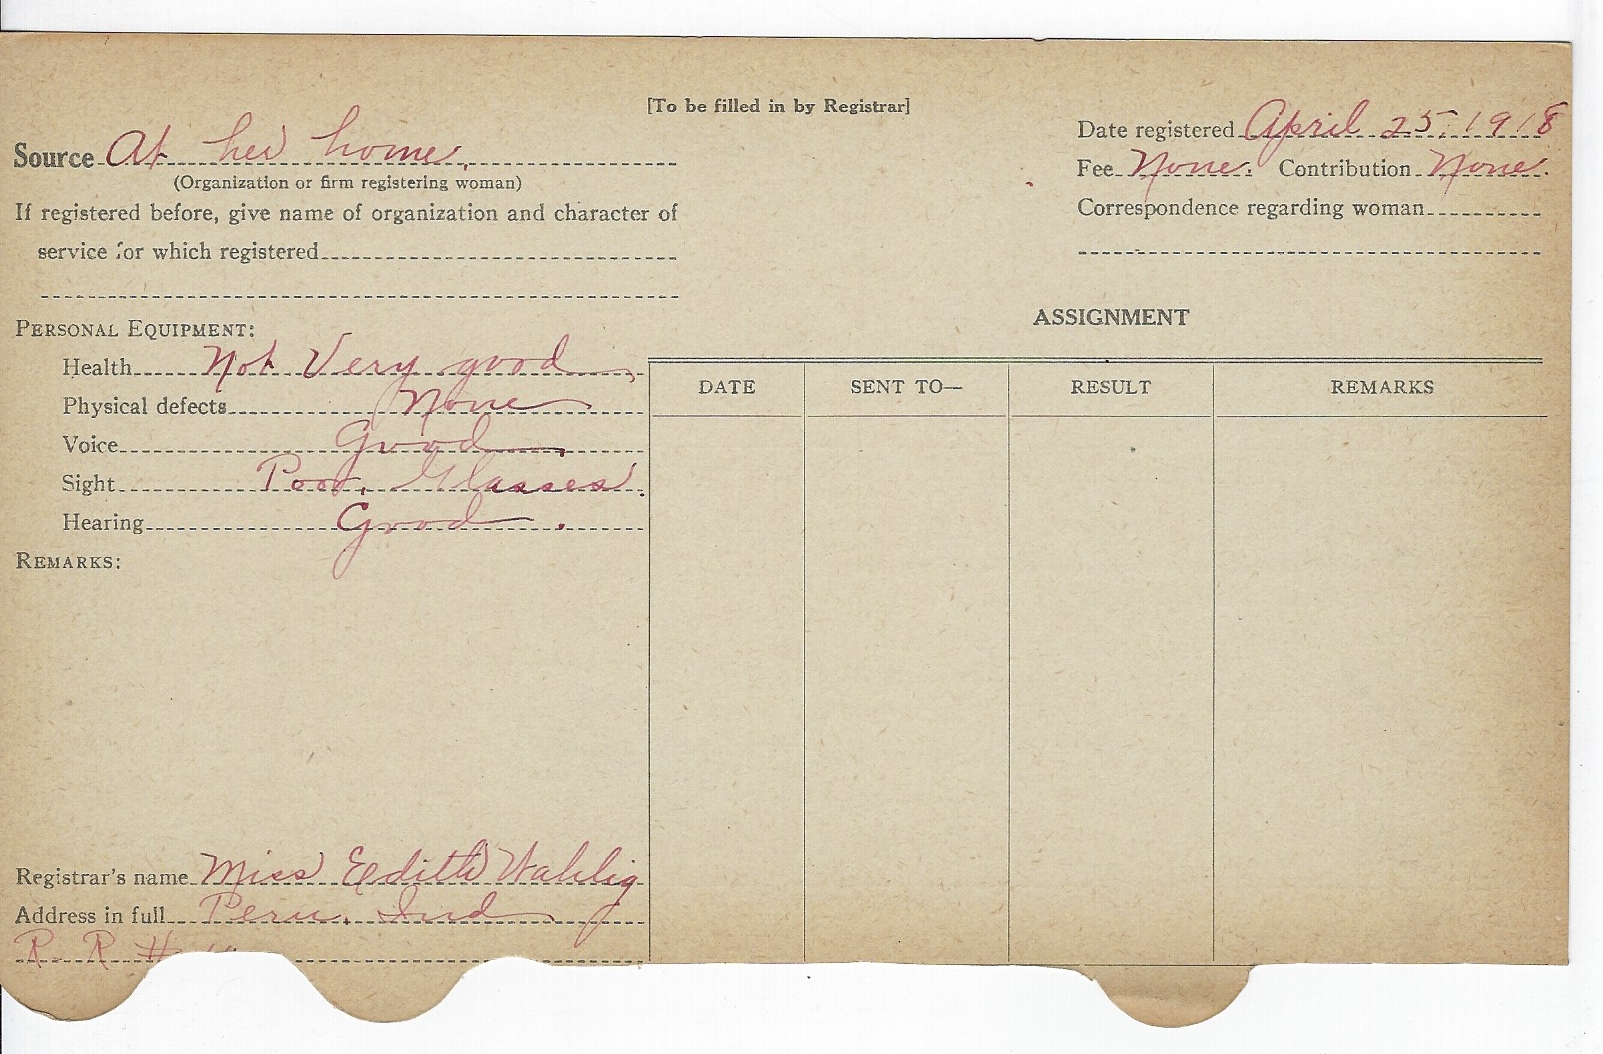 [To be filled in by Registrar]
Source At her home.
(Organization or firm registering woman)
If registered before, give name of organization and character of
service for which registered
Date registered April 25, 1918
Fee None. Contribution None.
Correspondence regarding woman
PERSONAL EQUIPMENT:
Health Not Very good
Physical defects None
Voice Good
Sight Poor, Glasses.
Hearing Good.
REMARKS:
ASSIGNMENT
DATE SENT TO— RESULT REMARKS
Registrar's name Miss Edith Wahlig
Address in full Peru, Ind
R R #